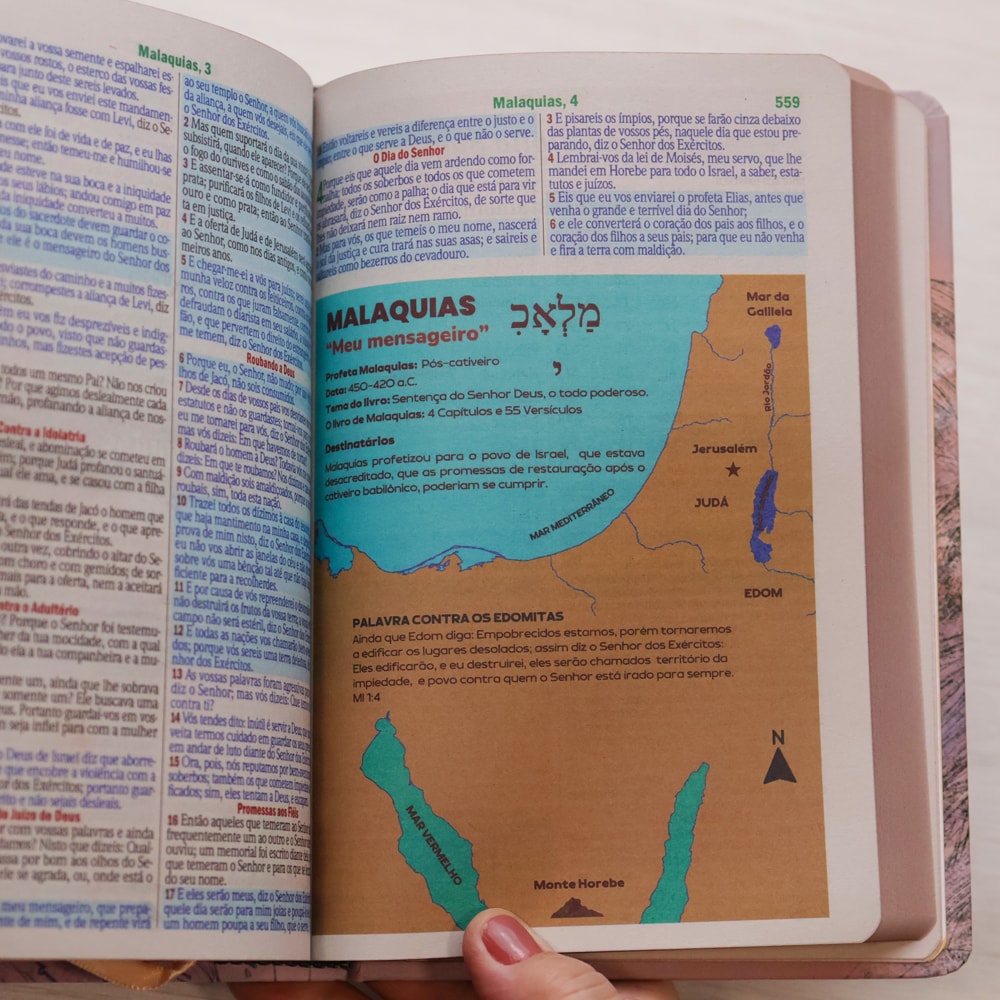 Malaquias, 3
varei a vossa semente e espalharei es-
vossos rostos, o esterco das vossas fes-
para junto deste sereis levados.
is que eu vos enviei este mandamen-
minha aliança fosse com Levi, diz o Se-
citos.
a com ele foi de vida e de paz, e eu lhas
mense; então temeu-me e humilhou-se
eu nome.
de esteve na sua boca e a iniquidade
os seus lábios; andou comigo em paz
da iniquidade converteu a muitos.
os do sacerdote devem guardar o co-
da sua boca devem os homens bus-
e ele é o mensageiro do Senhor dos
desviastes do caminho e a muitos fizes-
corrompestes a aliança de Levi, diz
ércitos.
eu vos fiz desprezíveis e indig-
do o povo, visto que não guardas-
minhos, mas fizestes acepção de pes-
todos um mesmo Pai? Não nos criou
? Por que agimos deslealmente cada
rmão, profanando a aliança de nos-
Contra a Idolatria
sleal, e abominação se cometeu em
lém; porque Judá profanou o santuá-
ual ele ama, e se casou com a filha
rá das tendas de Jacó o homem que
a, e o que responde, e o que apre-
o Senhor dos Exércitos.
outra vez, cobrindo o altar do Se-
om choro e com gemidos; de sor-
mais para a oferta, nem a aceitará
a mão.
ntra o Adultério
? Porque o Senhor foi testemu-
her da tua mocidade, com a qual
do ela a tua companheira e a mu-
ente um, ainda que lhe sobrava
somente um? Ele buscava uma
us. Portanto guardai-vos em vos-
seja infiel para com a mulher
Deus de Israel diz que aborre-
que encobre a violência com a
or dos Exércitos; portanto guar-
to e não sejais desleais.
do Juízo de Deus
r com vossas palavras e ainda
famos? Nisto que dizeis: Qual-
ssa por bom aos olhos do Se-
rle se agrada, ou, onde está o
meu mensageiro, que prepa-
nte de mim, e de repente virá
ao seu templo o Senhor, a quem vós
da aliança, a quem vós desejais, eis que
o Senhor dos Exércitos.
2 Mas quem suportará o dia da sua vinda
subsistirá, quando ele aparecer? Porque
o fogo do ourives e como o sabão
3 E assentar-se-á como fundidor e
prata; purificará os filhos de Levi e os
ouro e como prata; então ao Senhor
ta em justiça.
4 E a oferta de Judá e de Jerusalém será
ao Senhor, como nos dias antigos, e como
meiros anos.
5 E chegar-me-ei a vós para juízo; serei
munha veloz contra os feiticeiros, contra
ros, contra os que juram falsamente, contra
defraudam o diarista em seu salário, e a
fão, e que pervertem o direito do estrangeiro
me temem, diz o Senhor dos Exércitos.
Roubando a Deus
6 Porque eu, o Senhor, não mudo; por isso
lhos de Jacó, não sois consumidos.
7 Desde os dias de vossos pais vos desviastes
estatutos e não os guardastes; tornai-vos
eu me tornarei para vós, diz o Senhor
mas vós dizeis: Em que havemos de tornar?
8 Roubará o homem a Deus? Todavia vós
dizeis: Em que te roubamos? Nos dízimos e
9 Com maldição sois amaldiçoados, porque
roubais, sim, toda esta nação.
10 Trazei todos os dízimos à casa do tesouro
que haja mantimento na minha casa, e
prova de mim nisto, diz o Senhor dos Exércitos
eu não vos abrir as janelas do céu e não
sobre vós uma bênção tal até que não
ficiente para a recolherdes.
11 E por causa de vós repreenderei o devorador
não destruirá os frutos da vossa terra; e
campo não será estéril, diz o Senhor dos
12 E todas as nações vos chamarão
dos; porque vós sereis uma terra deleitosa
nhor dos Exércitos.
13 As vossas palavras foram agressivas
diz o Senhor; mas vós dizeis: Que
contra ti?
14 Vós tendes dito: Inútil é servir a Deus
veita termos cuidado em guardar os seus
em andar de luto diante do Senhor dos
15 Ora, pois, nós reputamos por bem-aventurados
soberbos; também os que cometem impiedade
ficados; sim, eles tentam a Deus, e escapam.
Promessas aos Fiéis
16 Então aqueles que temeram ao Senhor
frequentemente um ao outro e o Senhor
ouviu; um memorial foi escrito diante dele
que temeram o Senhor e para os que se
do seu nome.
17 E eles serão meus, diz o Senhor dos
quele dia serão para mim joias e poupá-los-ei
um homem poupa a seu filho, que o serve.
Malaquias, 4
559
Então voltareis e vereis a diferença entre o justo e o
entre o que serve a Deus, e o que não o serve.
O Dia do Senhor
4 Porque eis que aquele dia vem ardendo como for-
todos os soberbos e todos os que cometem
serão como a palha; o dia que está para vir
abrasará, diz o Senhor dos Exércitos, de sorte que
lhes não deixará nem raiz nem ramo.
Mas para vós, os que temeis o meu nome, nascerá
da justiça e cura trará nas suas asas; e saireis e
como bezerros do cevadouro.
3 E pisareis os ímpios, porque se farão cinza debaixo
das plantas de vossos pés, naquele dia que estou pre-
parando, diz o Senhor dos Exércitos.
4 Lembrai-vos da lei de Moisés, meu servo, que lhe
mandei em Horebe para todo o Israel, a saber, esta-
tutos e juízos.
5 Eis que eu vos enviarei o profeta Elias, antes que
venha o grande e terrível dia do Senhor;
6 e ele converterá o coração dos pais aos filhos, e o
coração dos filhos a seus pais; para que eu não venha
e fira a terra com maldição.
MALAQUIAS
"Meu mensageiro"
מַלְאָכִ
י
Profeta Malaquias: Pós-cativeiro
Data: 450-420 a.C.
Tema do livro: Sentença do Senhor Deus, o todo poderoso.
O livro de Malaquias: 4 Capítulos e 55 Versículos
Destinatários
Malaquias profetizou para o povo de Israel, que estava
desacreditado, que as promessas de restauração após o
cativeiro babilônico, poderiam se cumprir.
MAR MEDITERRÂNEO
Mar da
Galileia
Rio Jordão
Jerusalém
JUDÁ
EDOM
PALAVRA CONTRA OS EDOMITAS
Ainda que Edom diga: Empobrecidos estamos, porém tornaremos
a edificar os lugares desolados; assim diz o Senhor dos Exércitos:
Eles edificarão, e eu destruirei, eles serão chamados território da
impiedade, e povo contra quem o Senhor está irado para sempre.
Ml 1:4
N
MAR VERMELHO
Monte Horebe